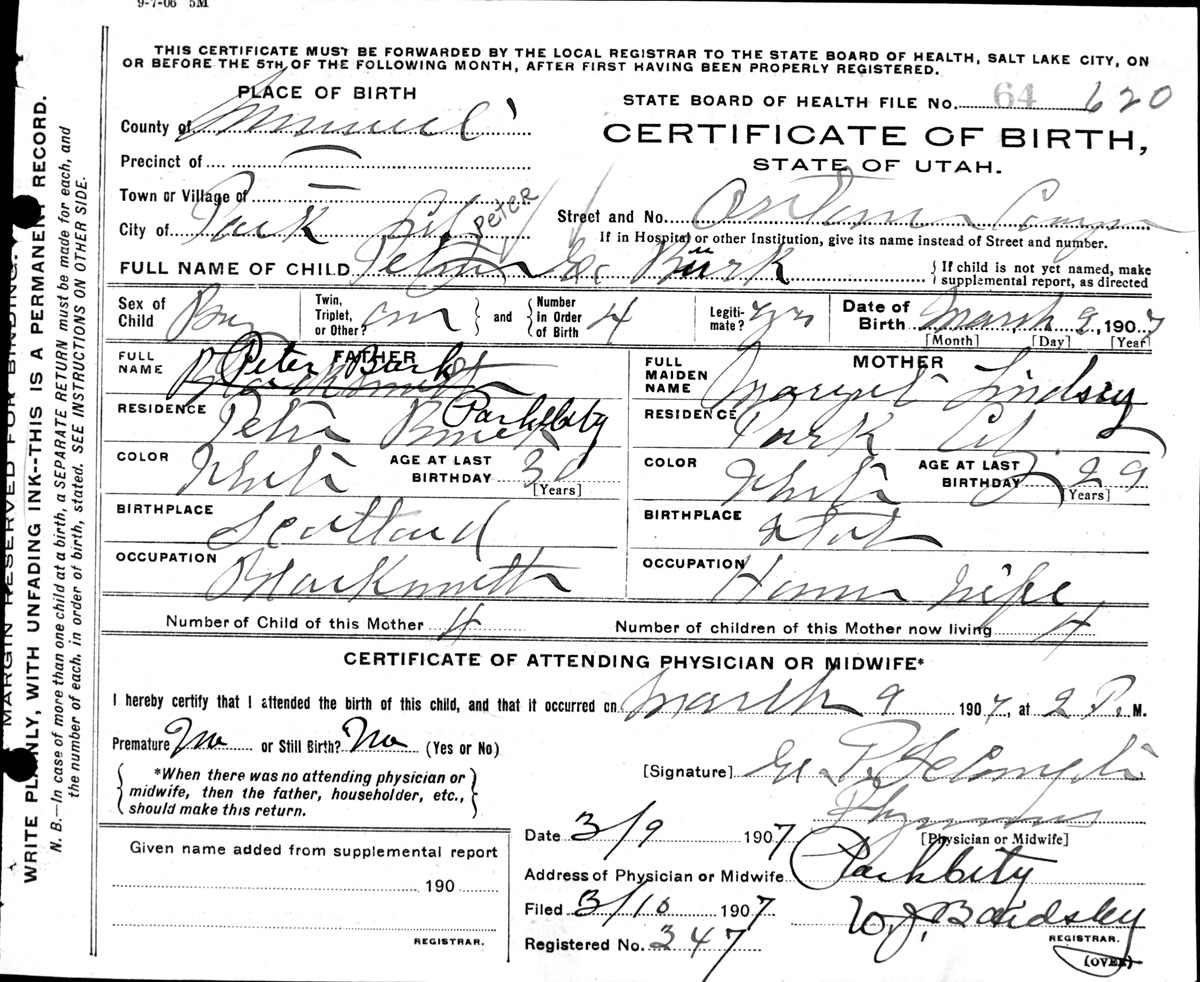 9-7-06 5M
THIS CERTIFICATE MUST BE FORWARDED BY THE LOCAL REGISTRAR TO THE STATE BOARD OF HEALTH, SALT LAKE CITY, ON
OR BEFORE THE 5TH OF THE FOLLOWING MONTH, AFTER FIRST HAVING BEEN PROPERLY REGISTERED.
PLACE OF BIRTH
STATE BOARD OF HEALTH FILE No. 64 620
County of
CERTIFICATE OF BIRTH,
Precinct of
STATE OF UTAH.
Town or Village of
City of Park City
Peter
Street and No.
If in Hospital or other Institution, give its name instead of Street and number.
FULL NAME OF CHILD Burk
If child is not yet named, make
supplemental report, as directed
Sex of Child Boy
Twin, Triplet, or Other?
and
Number in Order of Birth 4
Legitimate? Yes
Date of Birth March 9, 1907
[Month] [Day] [Year]
FATHER
FULL NAME Peter Burk Blacksmith
RESIDENCE Peter Burk Park City
COLOR White
AGE AT LAST BIRTHDAY 30
[Years]
BIRTHPLACE Scotland
OCCUPATION Blacksmith
MOTHER
FULL MAIDEN NAME Margret Lindsey
RESIDENCE Park City
COLOR White
AGE AT LAST BIRTHDAY 29
[Years]
BIRTHPLACE Utah
OCCUPATION House Wife
Number of Child of this Mother 4
Number of children of this Mother now living 4
CERTIFICATE OF ATTENDING PHYSICIAN OR MIDWIFE*
I hereby certify that I attended the birth of this child, and that it occurred on March 9 1907, at 2 P. M.
Premature No or Still Birth? No (Yes or No)
*When there was no attending physician or
midwife, then the father, householder, etc.,
should make this return.
[Signature]
[Physician or Midwife]
Date 3/9 1907
Address of Physician or Midwife Park City
Filed 3/10 1907
W. J. Bardsley
REGISTRAR.
Registered No. 347
(OVER)
Given name added from supplemental report
190
REGISTRAR.
MARGIN RESERVED FOR BINDING.
WRITE PLAINLY, WITH UNFADING INK--THIS IS A PERMANENT RECORD.
N. B.—In case of more than one child at a birth, a SEPARATE RETURN must be made for each, and
the number of each, in order of birth, stated. SEE INSTRUCTIONS ON OTHER SIDE.